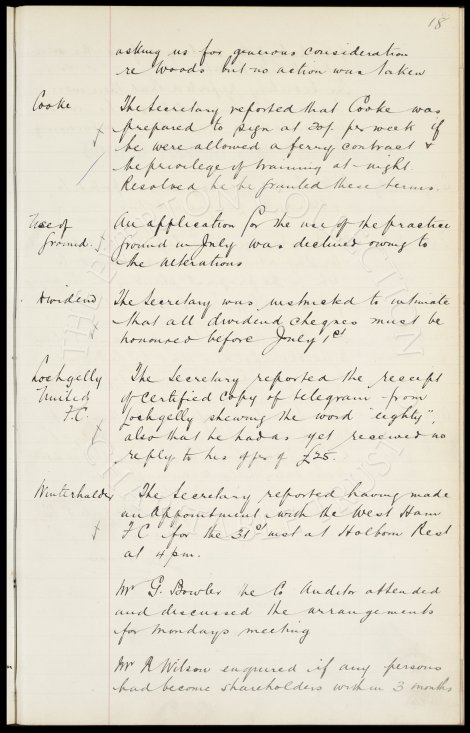 18
asking us for generous consideration
re Woods but no action was taken
Cooke
The Secretary reported that Cooke was
prepared to sign at 30/ per week if
he were allowed a ferry contract &
the privilege of training at night.
Resolved he be granted these terms.
Use of
Ground.
An application for the use of the practice
ground in July was declined owing to
the alterations
Dividend
The Secretary was instructed to intimate
that all dividend cheques must be
honoured before July 1st
Lochgelly
United
F.C.
The Secretary reported the receipt
of certified copy of telegram from
Lochgelly shewing the word "eighty",
also that he had as yet received no
reply to his offer of £25.
Winterhalder
The Secretary reported having made
an Appointment with the West Ham
FC for the 31st inst at Holborn Rest
at 4 pm.
Mr G. Bowler the Co Auditor attended
and discussed the arrangements
for Mondays meeting
Mr R Wilson enquired if any persons
had become shareholders within 3 months
THE EVERTON COLLECTION
CHARITABLE TRUST